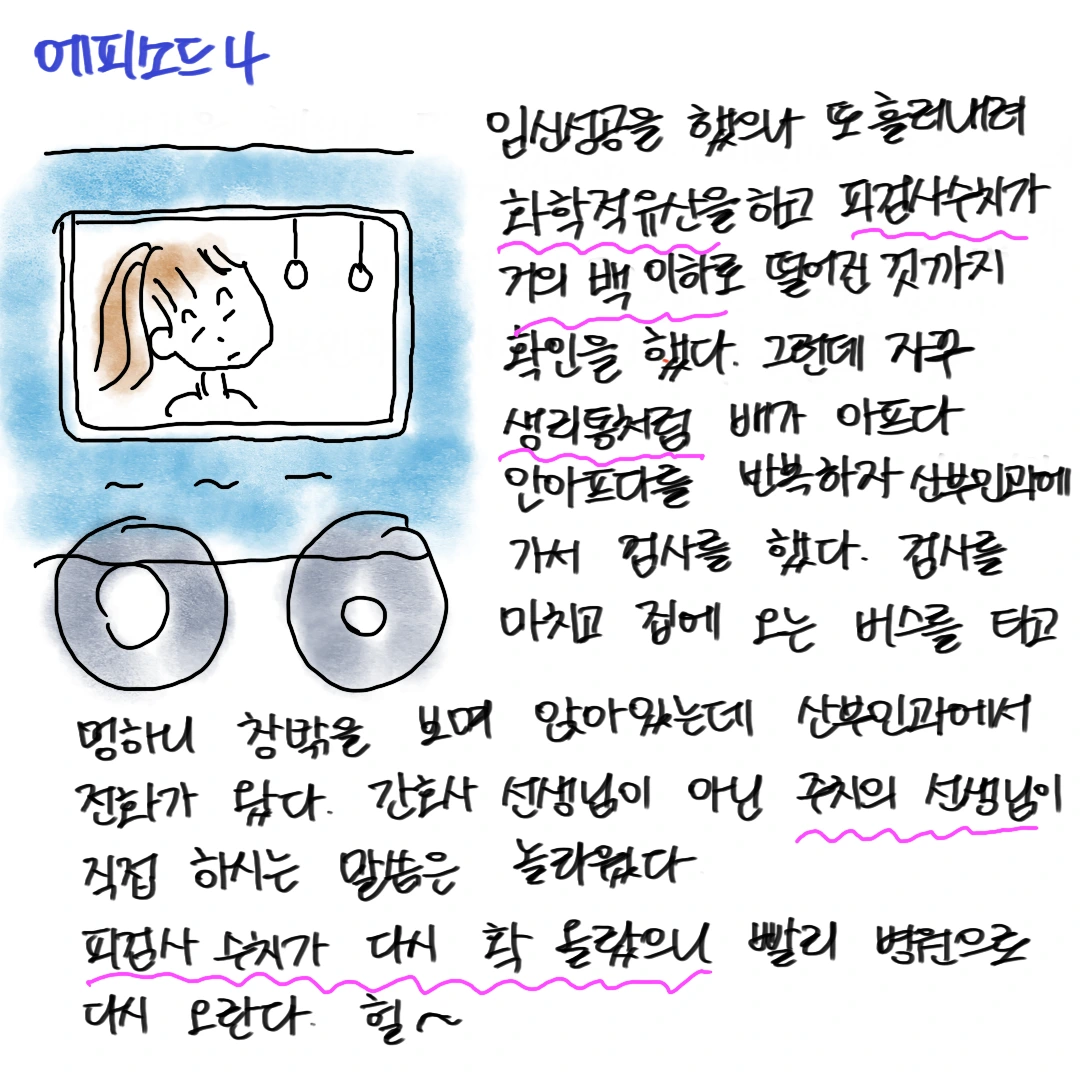 에피소드 4
임신성공을 했으나 또 흘러내려
화학적유산을 하고 피검사수치가
거의 백 이하로 떨어진 것까지
확인을 했다. 그런데 자꾸
생리통처럼 배가 아프다
안아프다를 반복하자 산부인과에
가서 검사를 했다. 검사를
마치고 집에 오는 버스를 타고
멍하니 창밖을 보며 앉아있는데 산부인과에서
전화가 왔다. 간호사 선생님이 아닌 주치의 선생님이
직접 하시는 말씀은 놀라웠다
피검사 수치가 다시 확 올랐으니 빨리 병원으로
다시 오란다. 헐~